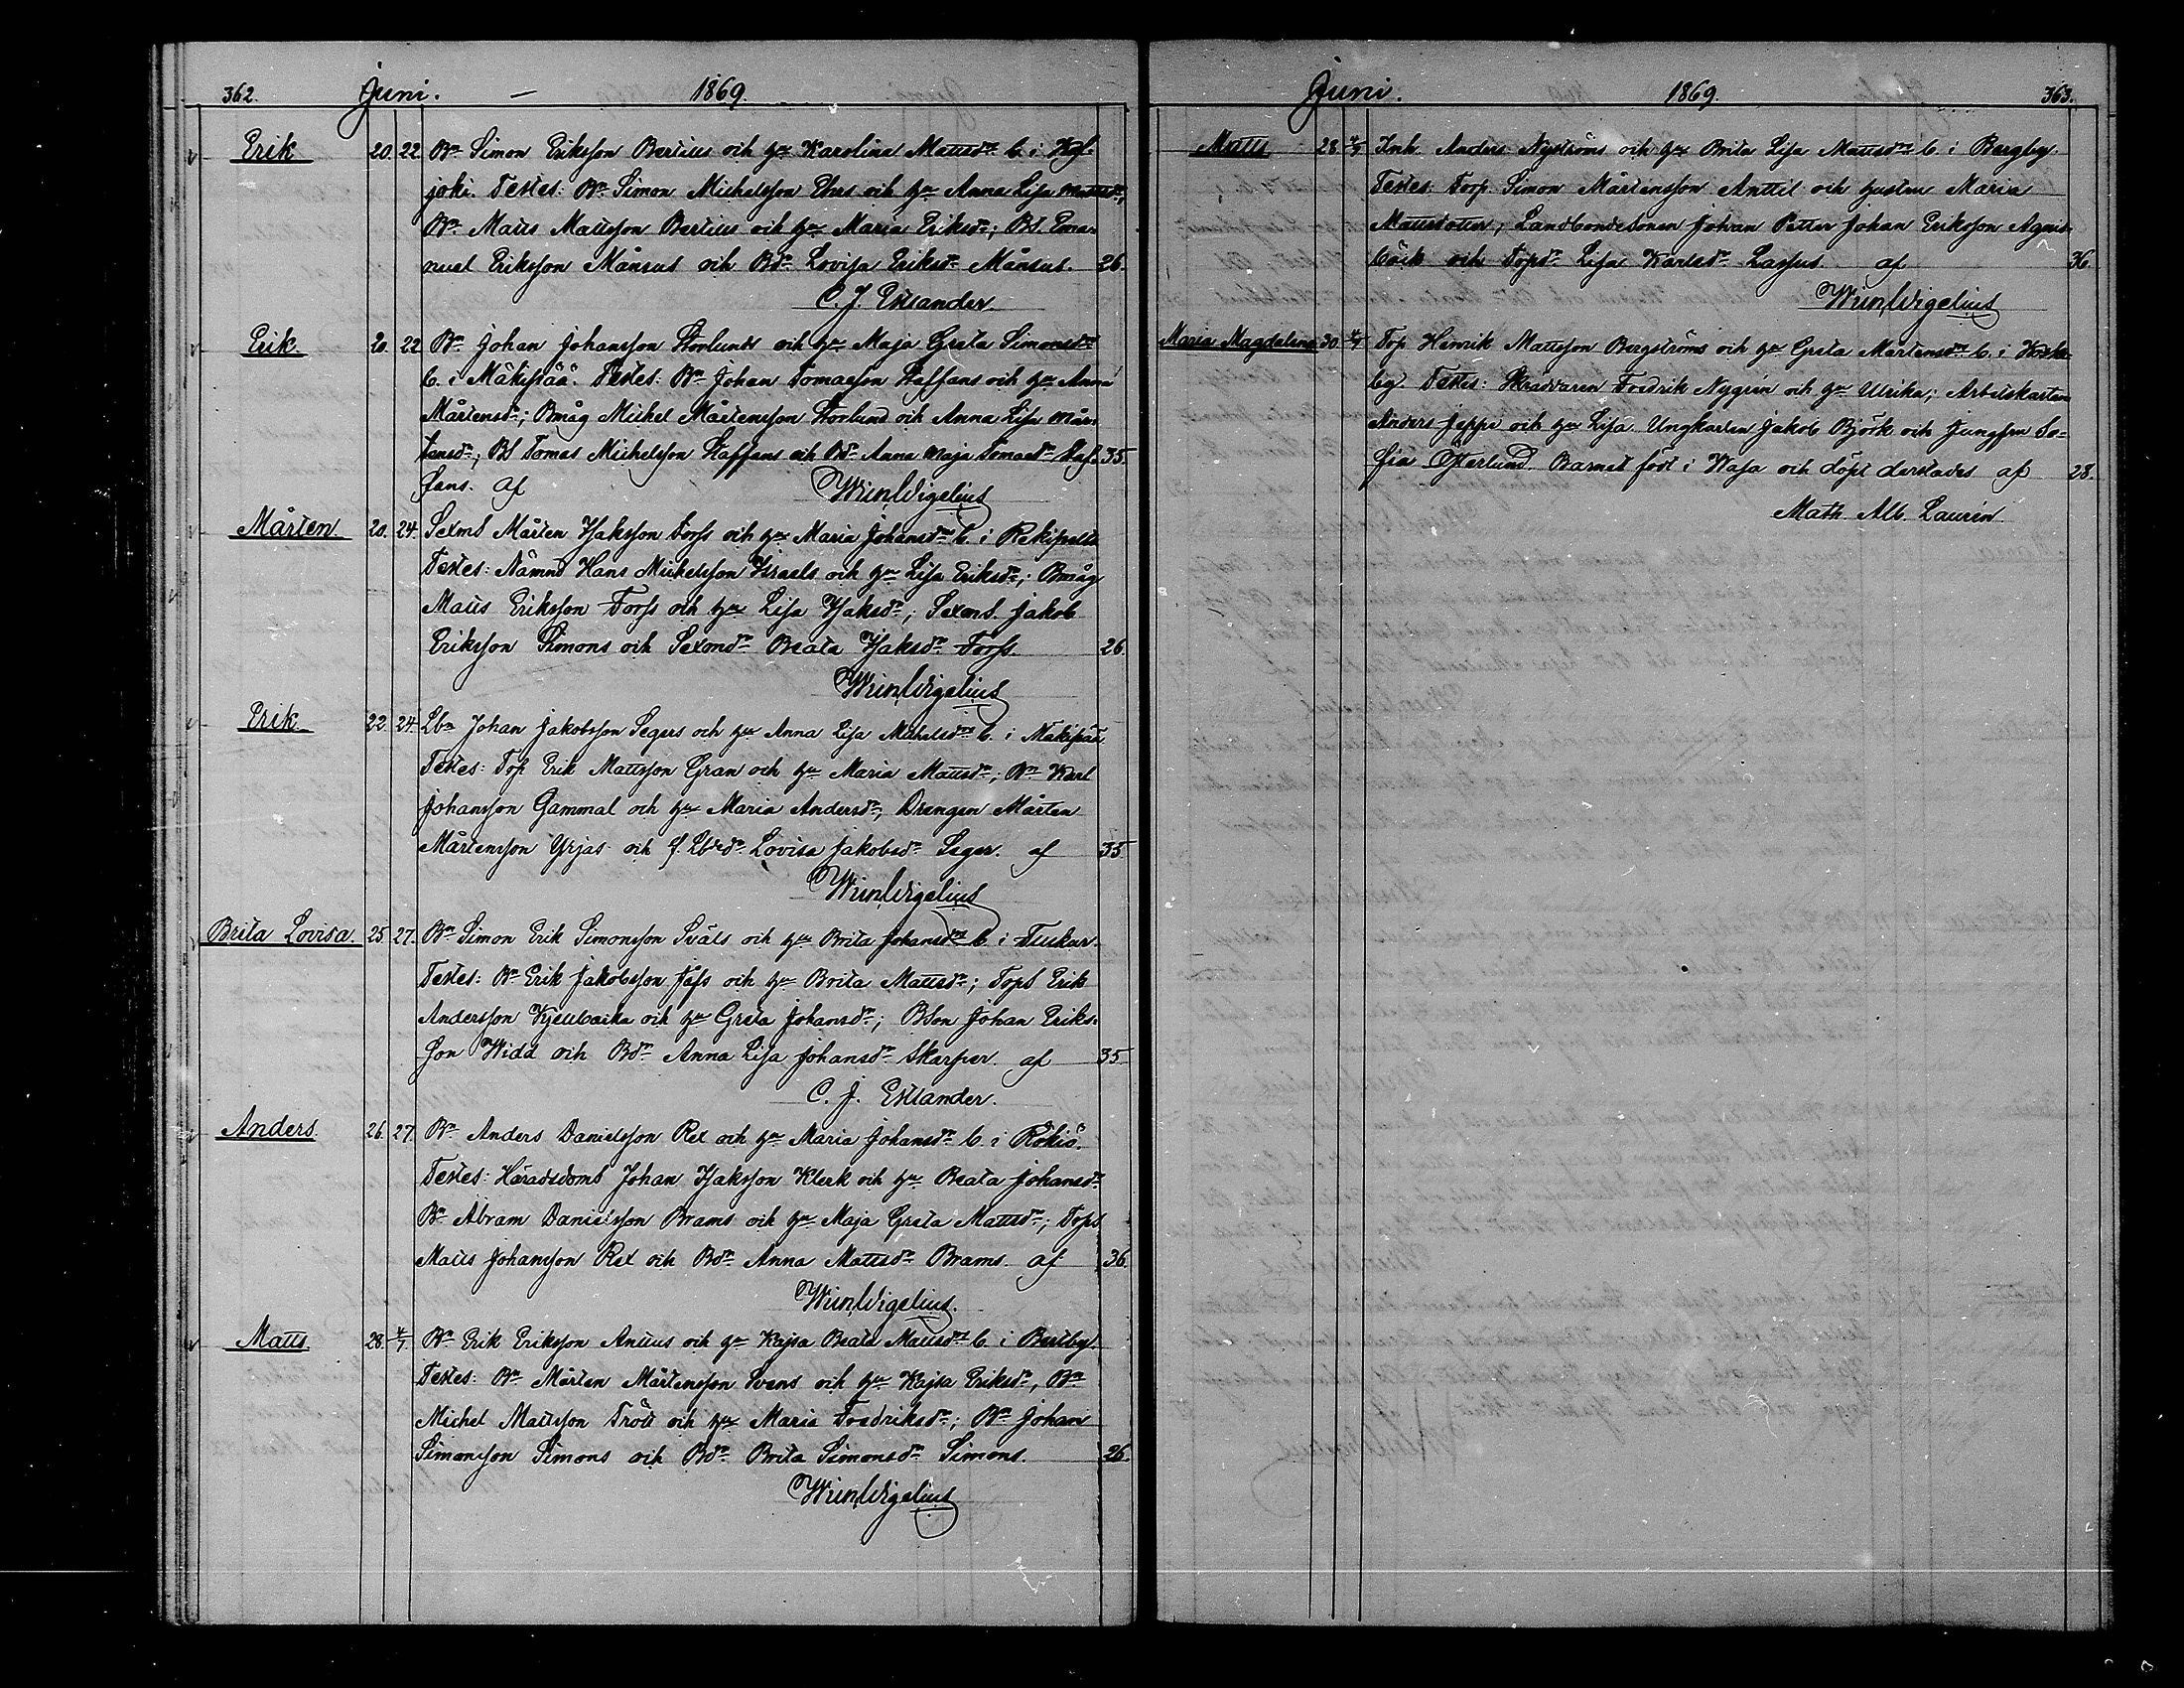 362. Juni. — 1869.
Erik 20. 22 Bn Simon Eriksson Bertils och hu Karolina Mattsdr b. i
joki. Testes: Bn Simon Michelsson Ehrs och hu Anna Lisa Mattsdr;
Bn Matts Mattsson Bertils och hu Maria Eriksdr; BS. Ema-
nuel Eriksson Månsus och Bdr Lovisa Eriksdr Månsus. 26.
C. J. Estlander.
Erik. 20. 22 Bn Johan Johansson Storlunds och hu Maja Greta Simonsdr
b. i Mäkipää. Testes: Bn Johan Tomasson Staffans och hu Anna
Mårtensdr; Bmåg Michel Mårtensson Storlund och Anna Lisa Mår-
tensdr; BS Tomas Michelsson Staffans och Bdr Anna Maja Tomasdr Staf- 35.
fans. af Wilh. Vigelius
Mårten 20. 24. Sexms Mårten Isaksson Forss och hu Maria Johansdr b. i Rekipelto
Testes: Nämnd Hans Michelsson Israels och hu Lisa Eriksdr; Bmåg
Matts Eriksson Forss och hu Lisa Isaksdr; Sexms Jakob
Eriksson Simons och Sexmdr Beata Isaksdr Forss. 26.
Wilh. Vigelius
Erik. 22. 24. Lbn Johan Jakobsson Segers och hu Anna Lisa Michelsdr b. i Mäkipää
Testes: Top Erik Mattsson Gran och hu Maria Mattsdr; Bn Karl
Johansson Gammal och hu Maria Andersdr; Drengen Mårten
Mårtensson Yrjas och f. Lbdr Lovisa Jakobsdr Seger. af 35.
Wilh. Vigelius
Brita Lovisa. 25. 27. Bn Simon Erik Simonsson Sväls och hu Brita Johansdr b. i Tuckur.
Testes: Bn Erik Jakobsson Jåfs och hu Brita Mattsdr; TopS Erik
Andersson Kjellbacka och hu Greta Johansdr; BSon Johan Eriks-
son Widd och Bdr Anna Lisa Johansdr Skarper. af 35
C. J. Estlander.
Anders. 26. 27. Bn Anders Danielsson Rex och hu Maria Johansdr b. i Rökiö.
Testes: Häradsdoms Johan Isaksson Klerk och hu Beata Johansdr
Bn Abram Danielsson Brams och hu Maja Greta Mattsdr; TopS
Matts Johansson Rex och Bdr Anna Mattsdr Brams. af 36.
Wilh. Vigelius.
Matts. 28. 4/7. Bn Erik Eriksson Antus och hu Kajsa Beata Mattsdr b. i Bertby.
Testes: Bn Mårten Mårtensson Svens och hu Kajsa Eriksdr, Bn
Michel Mattsson Trött och hu Maria Fredriksdr; Bn Johan
Simonsson Simons och Bdr Brita Simonsdr Simons. 26.
Wilh. Vigelius
Juni. 1869. 363.
Matts 28 4/7 Inh. Anders Nyströms och hu Brita Lisa Mattsdr b. i Bergby.
Testes: Torp. Simon Mårtensson Anttil och hustru Maria
Mattsdotter; Landbondesonen Johan Petter Johan Eriksson Agnis-
bäck och Topdr Lisa Karlsdr Lassus. af 36.
Wilh. Vigelius
Maria Magdalina 30 4/7 Top Henrik Mattsson Bergströms och hu Greta Mårtensdr b. i
by. Testes: Skradvaren Fredrik Nygrén och hu Ulrika; Arbetskarlen
Anders Jeppe och hu Lisa. Ungkarlen Jakob Björk och Jungfru So-
fia Österlund. Barnet född i Wasa och döpt derstades af 28.
Math. Alb. Laurin